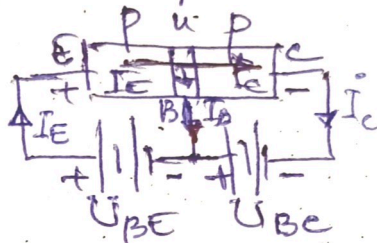 p n p
E I_E I_C C
+ B I_B -
I_E I_C
+ - + -
U_BE U_BC